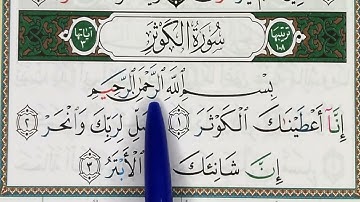 ترتيبها ١٠٨ سُورَةُ الكَوْثَرِ آياتها ٣
بِسْمِ اللَّهِ الرَّحْمَٰنِ الرَّحِيمِ
إِنَّآ أَعْطَيْنَٰكَ الْكَوْثَرَ ١ لِرَبِّكَ وَانْحَرْ ٢
إِنَّ شَانِئَكَ الْأَبْتَرُ ٣